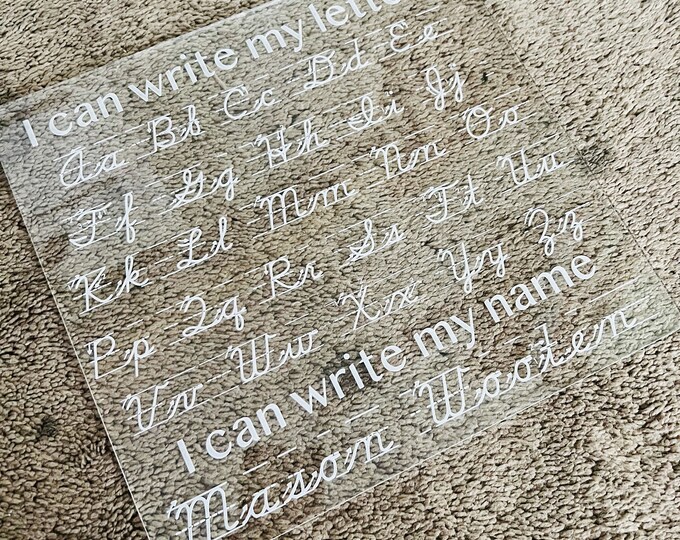 I can write my lette
Aa Bb Cc Dd Ee
Ff Gg Hh Ii Jj
Kk Ll Mm Nn Oo
Pp Qq Rr Ss Tt Uu
Vv Ww Xx Yy Zz
I can write my name
Mason Wooten